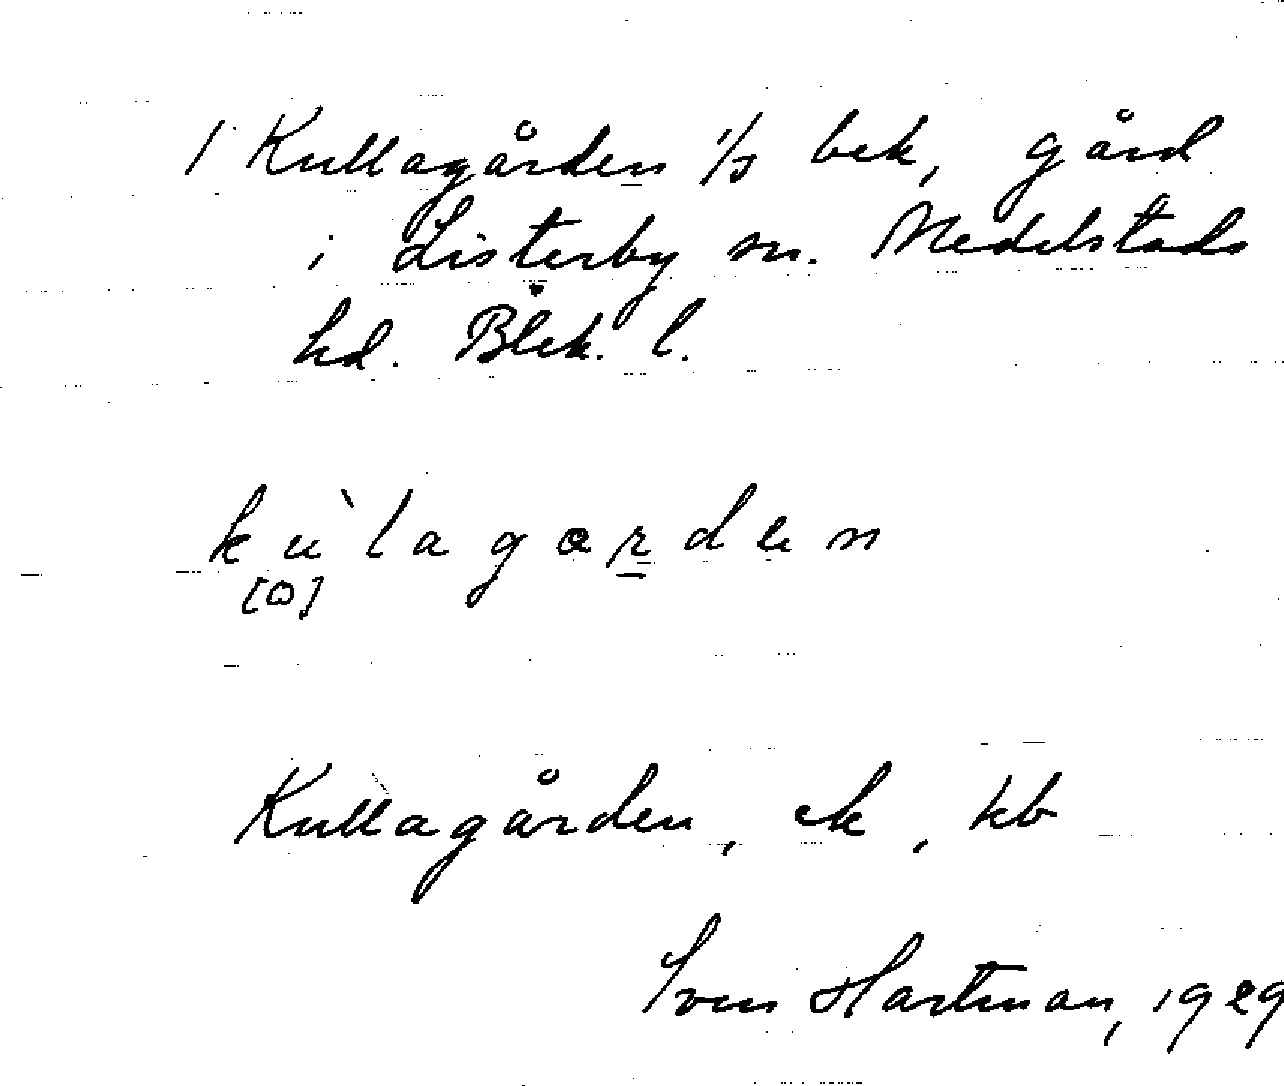 1 Kullagården 1/3 bek, gård
i Listerby sn. Medelstads
hd. Blek. l.
kùlagarden
[o]
Kullagården, ek, kb
Sven Hartman, 1929